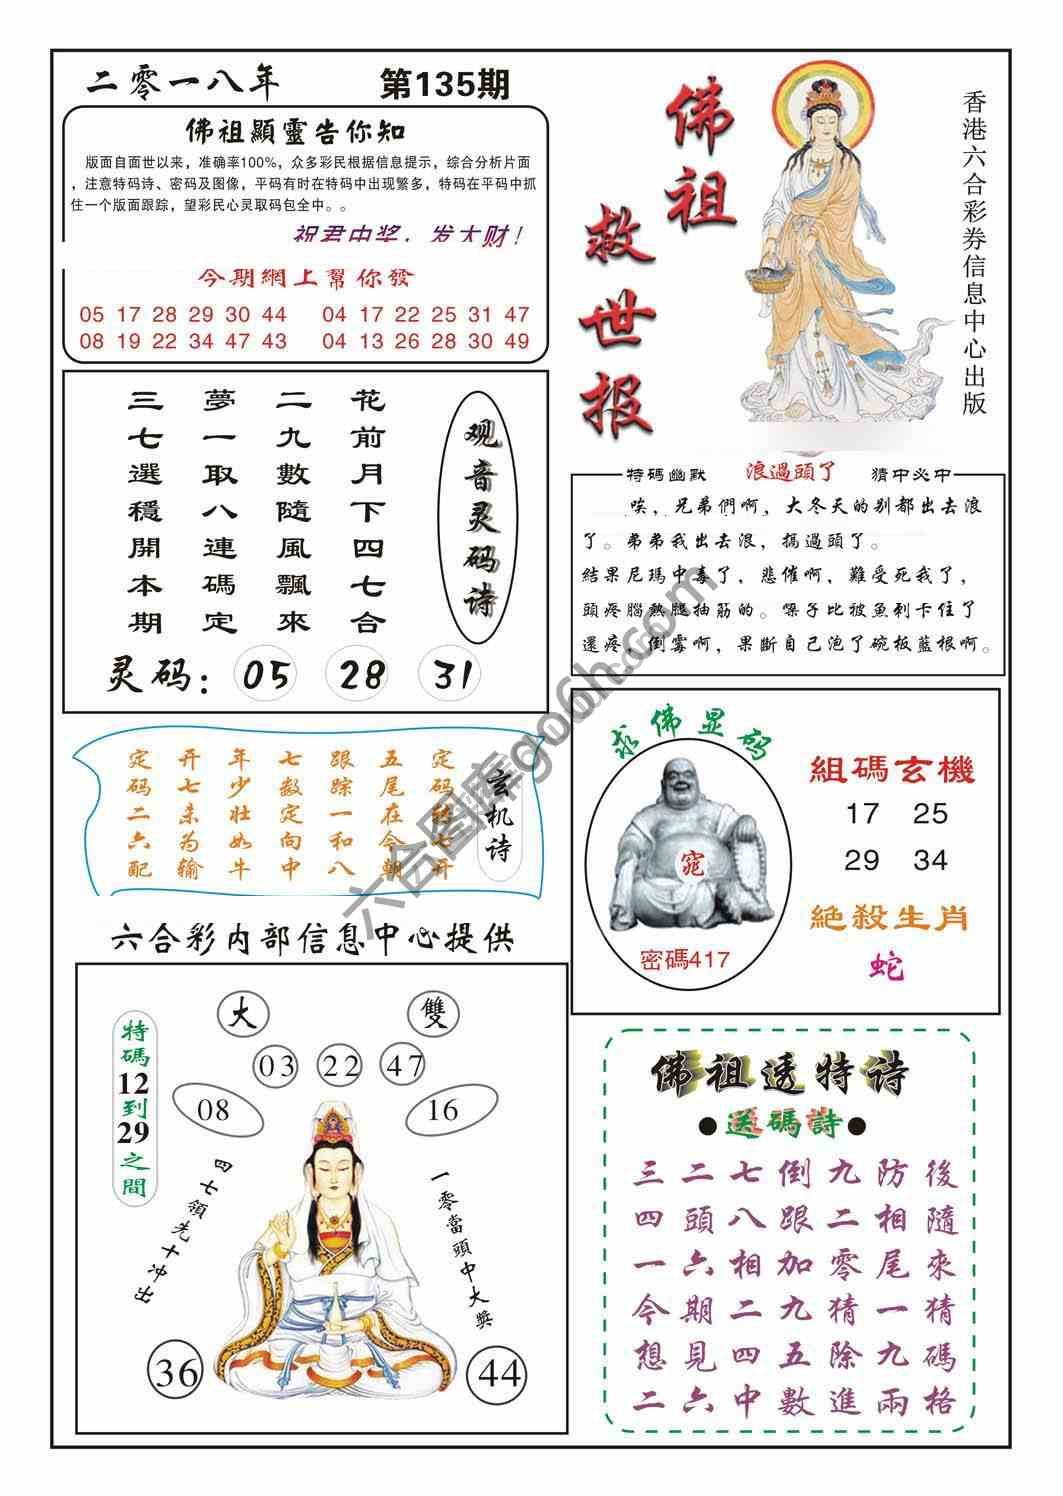 二零一八年
第135期
佛祖顯靈告你知
版面自面世以来，准确率100%，众多彩民根据信息提示，综合分析片面
，注意特码诗、密码及图像，平码有时在特码中出现繁多，特码在平码中抓
住一个版面跟踪，望彩民心灵取码包全中。。
祝君中奖，发大财！
今期網上幫你發
05 17 28 29 30 44
04 17 22 25 31 47
08 19 22 34 47 43
04 13 26 28 30 49
佛祖
救世报
香港六合彩券信息中心出版
观音灵码诗
花前月下四七合
二九數隨風飄來
夢一取八連碼定
三七選穩開本期
灵码：05 28 31
特碼幽默
浪過頭了
猜中必中
唉，兄弟們啊，大冬天的别都出去浪
了。弟弟我出去浪，搞過頭了。
結果尼瑪中毒了，悲催啊，難受死我了，
頭疼腦熱腿抽筋的。嗓子比被魚刺卡住了
還疼，倒霉啊，果斷自己泡了碗板藍根啊。
玄机诗
定码
七开
五尾在今朝
跟踪一和八
七数定向中
年少壮如牛
开七未为输
定码二六配
求佛显码
窕
密碼417
組碼玄機
17 25
29 34
絕殺生肖
蛇
六合彩内部信息中心提供
特碼12到29之間
大
雙
03
22
47
08
16
四七領先十冲出
一零當頭中大獎
36
44
佛祖透特诗
●送碼詩●
三二七倒九防後
四頭八跟二相隨
一六相加零尾來
今期二九猜一猜
想見四五除九碼
二六中數進兩格
六合图库go6h.com